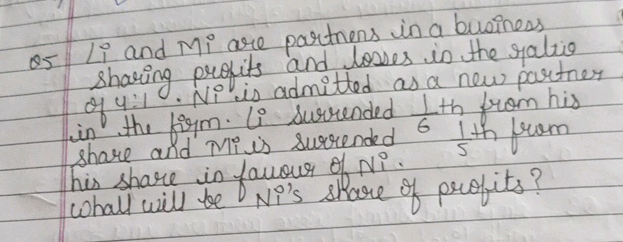 Q5 Li and Mi are partners in a business
sharing profits and losses in the ratio
of 4:1. Ni is admitted as a new partner
in the firm. Li surrended 1/6 th from his
share and Mi is surrended 1/5 th from
his share in favour of Ni.
Whall will be Ni's share of profits?